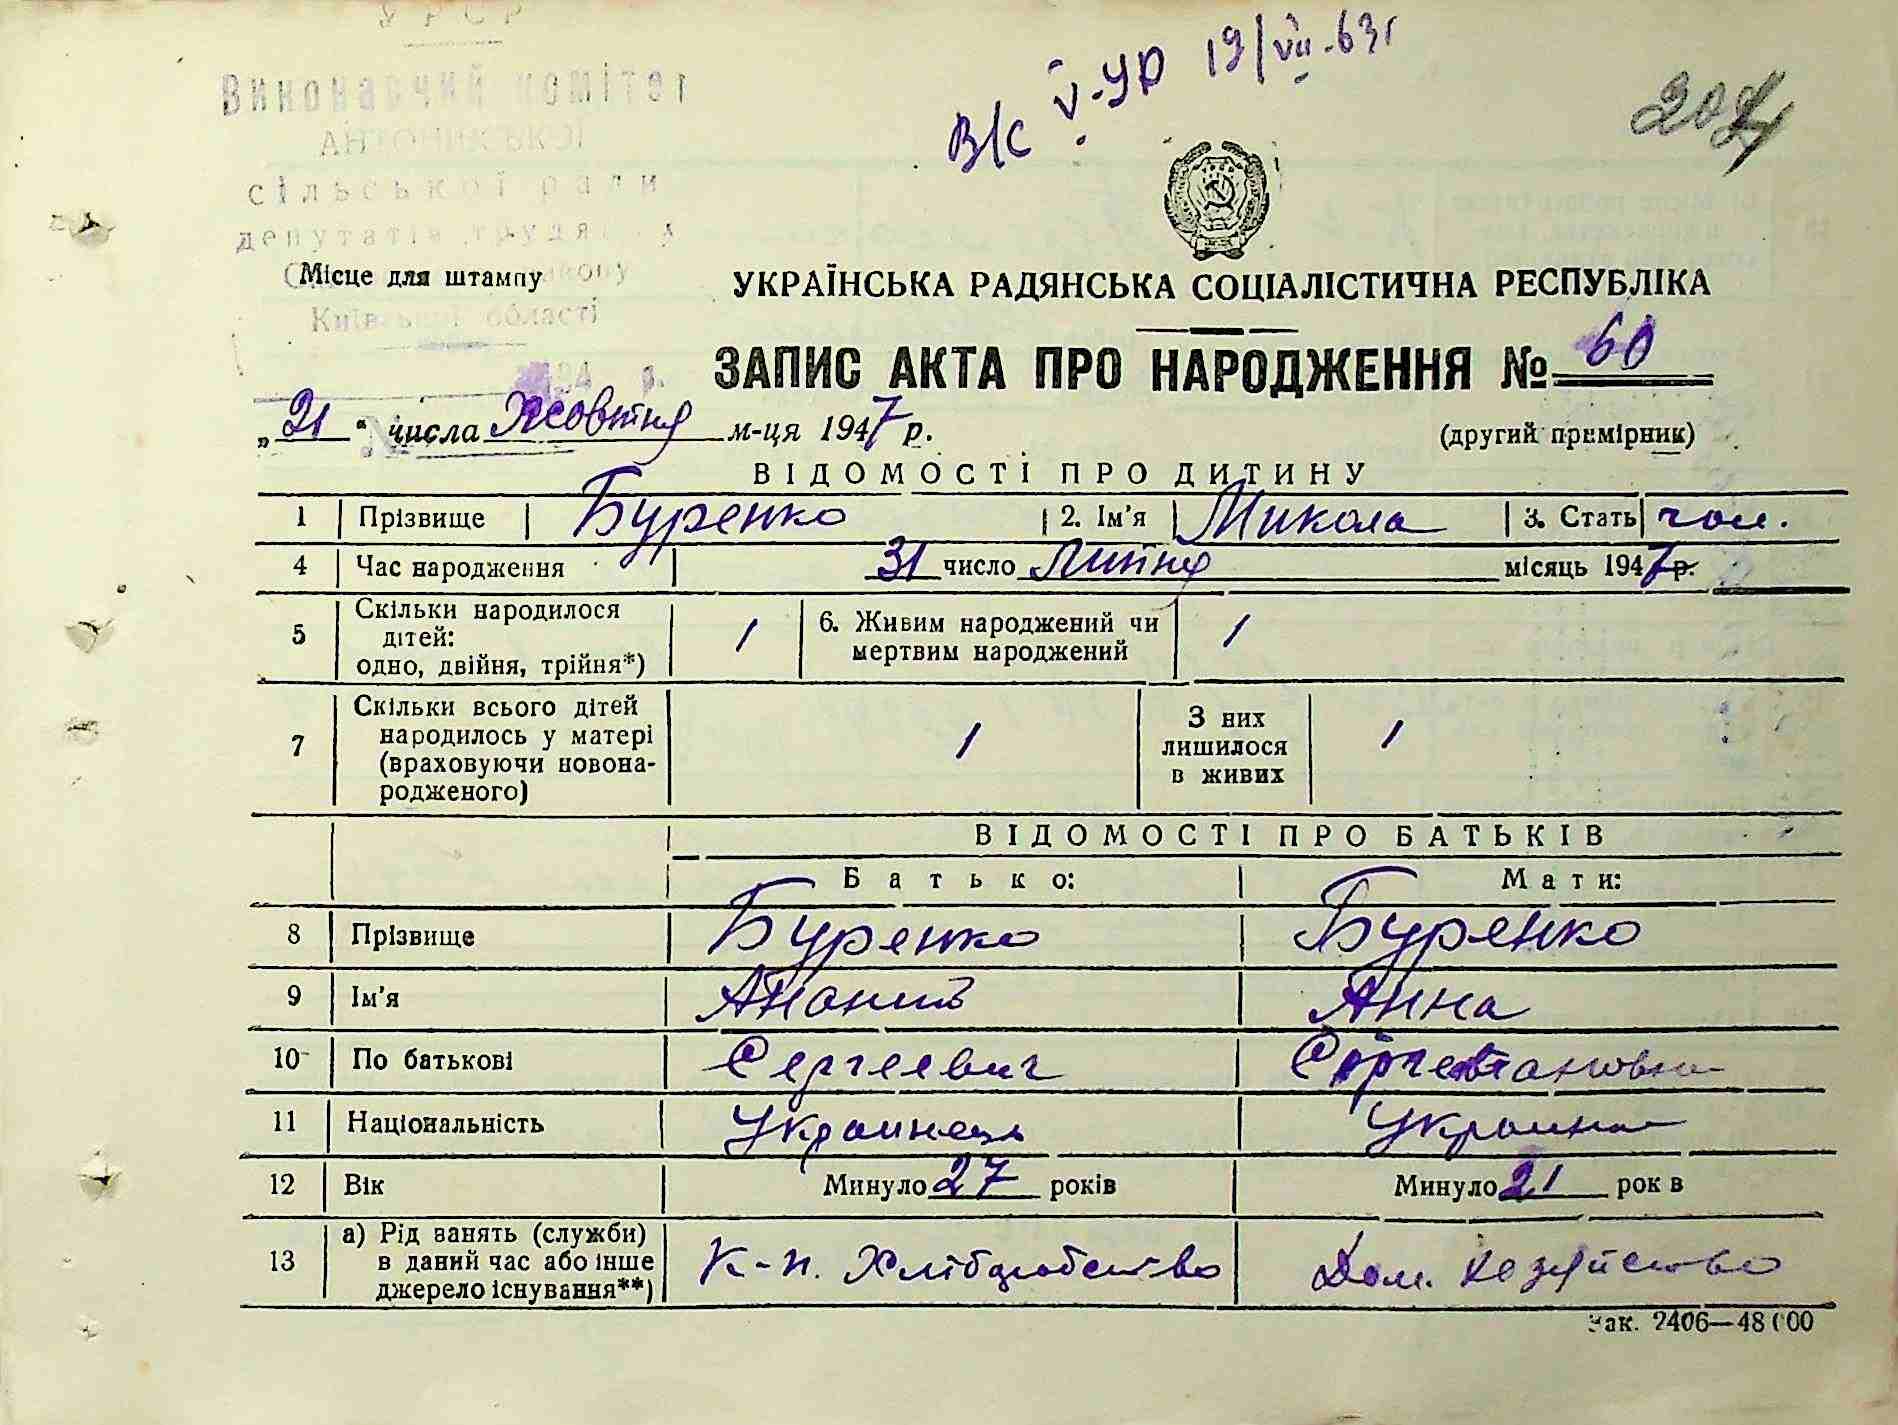 УРСР
Виконавчий комітет
АНТОНИНСЬКОЇ
сільської ради
депутатів трудящих
району
Київської області
194 р.
В/С V-УР 19/VII-63г
204
Місце для штампу
УКРАЇНСЬКА РАДЯНСЬКА СОЦІАЛІСТИЧНА РЕСПУБЛІКА
ЗАПИС АКТА ПРО НАРОДЖЕННЯ № 60
„21“ числа Жовтня м-ця 1947 р. (другий примірник)
ВІДОМОСТІ ПРО ДИТИНУ
1 Прізвище Буренко 2. Ім'я Микола 3. Стать чол.
4 Час народження 31 число Липня місяць 1947 р.
5 Скільки народилося дітей: одно, двійня, трійня*) 1 6. Живим народжений чи мертвим народжений 1
7 Скільки всього дітей народилось у матері (враховуючи новонародженого) 1 З них лишилося в живих 1
ВІДОМОСТІ ПРО БАТЬКІВ
Батько: Мати:
8 Прізвище Буренко Буренко
9 Ім'я Ананий Анна
10 По батькові Сергеевич
11 Національність Украинець Украинка
12 Вік Минуло 27 років Минуло 21 рок в
13 а) Рід занять (служби) в даний час або інше джерело існування**) К-п. Хліборобство Дом. хозяйство
Зак. 2406—48000